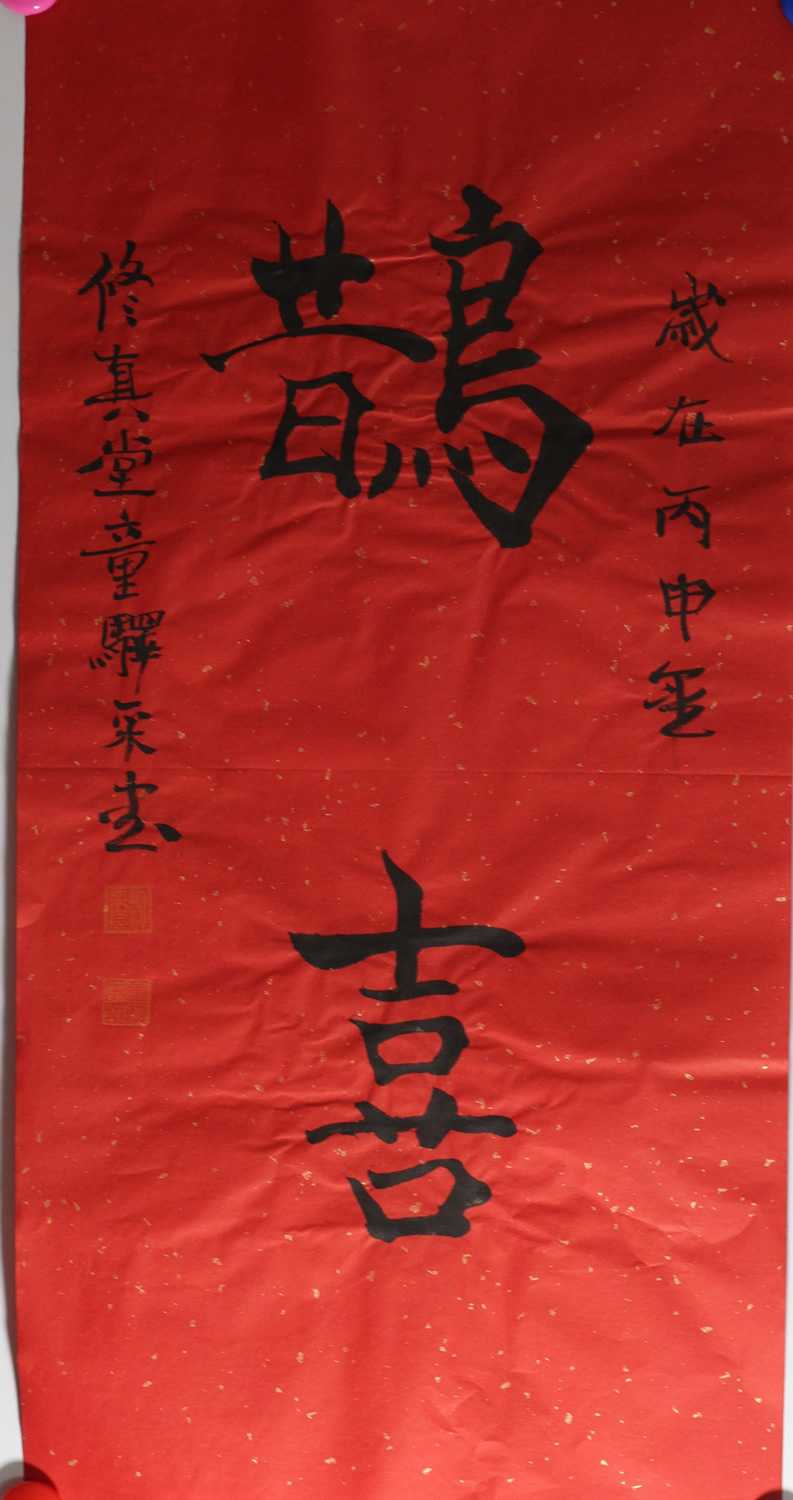 歲在丙申冬
鵲喜
修真堂童驛采書